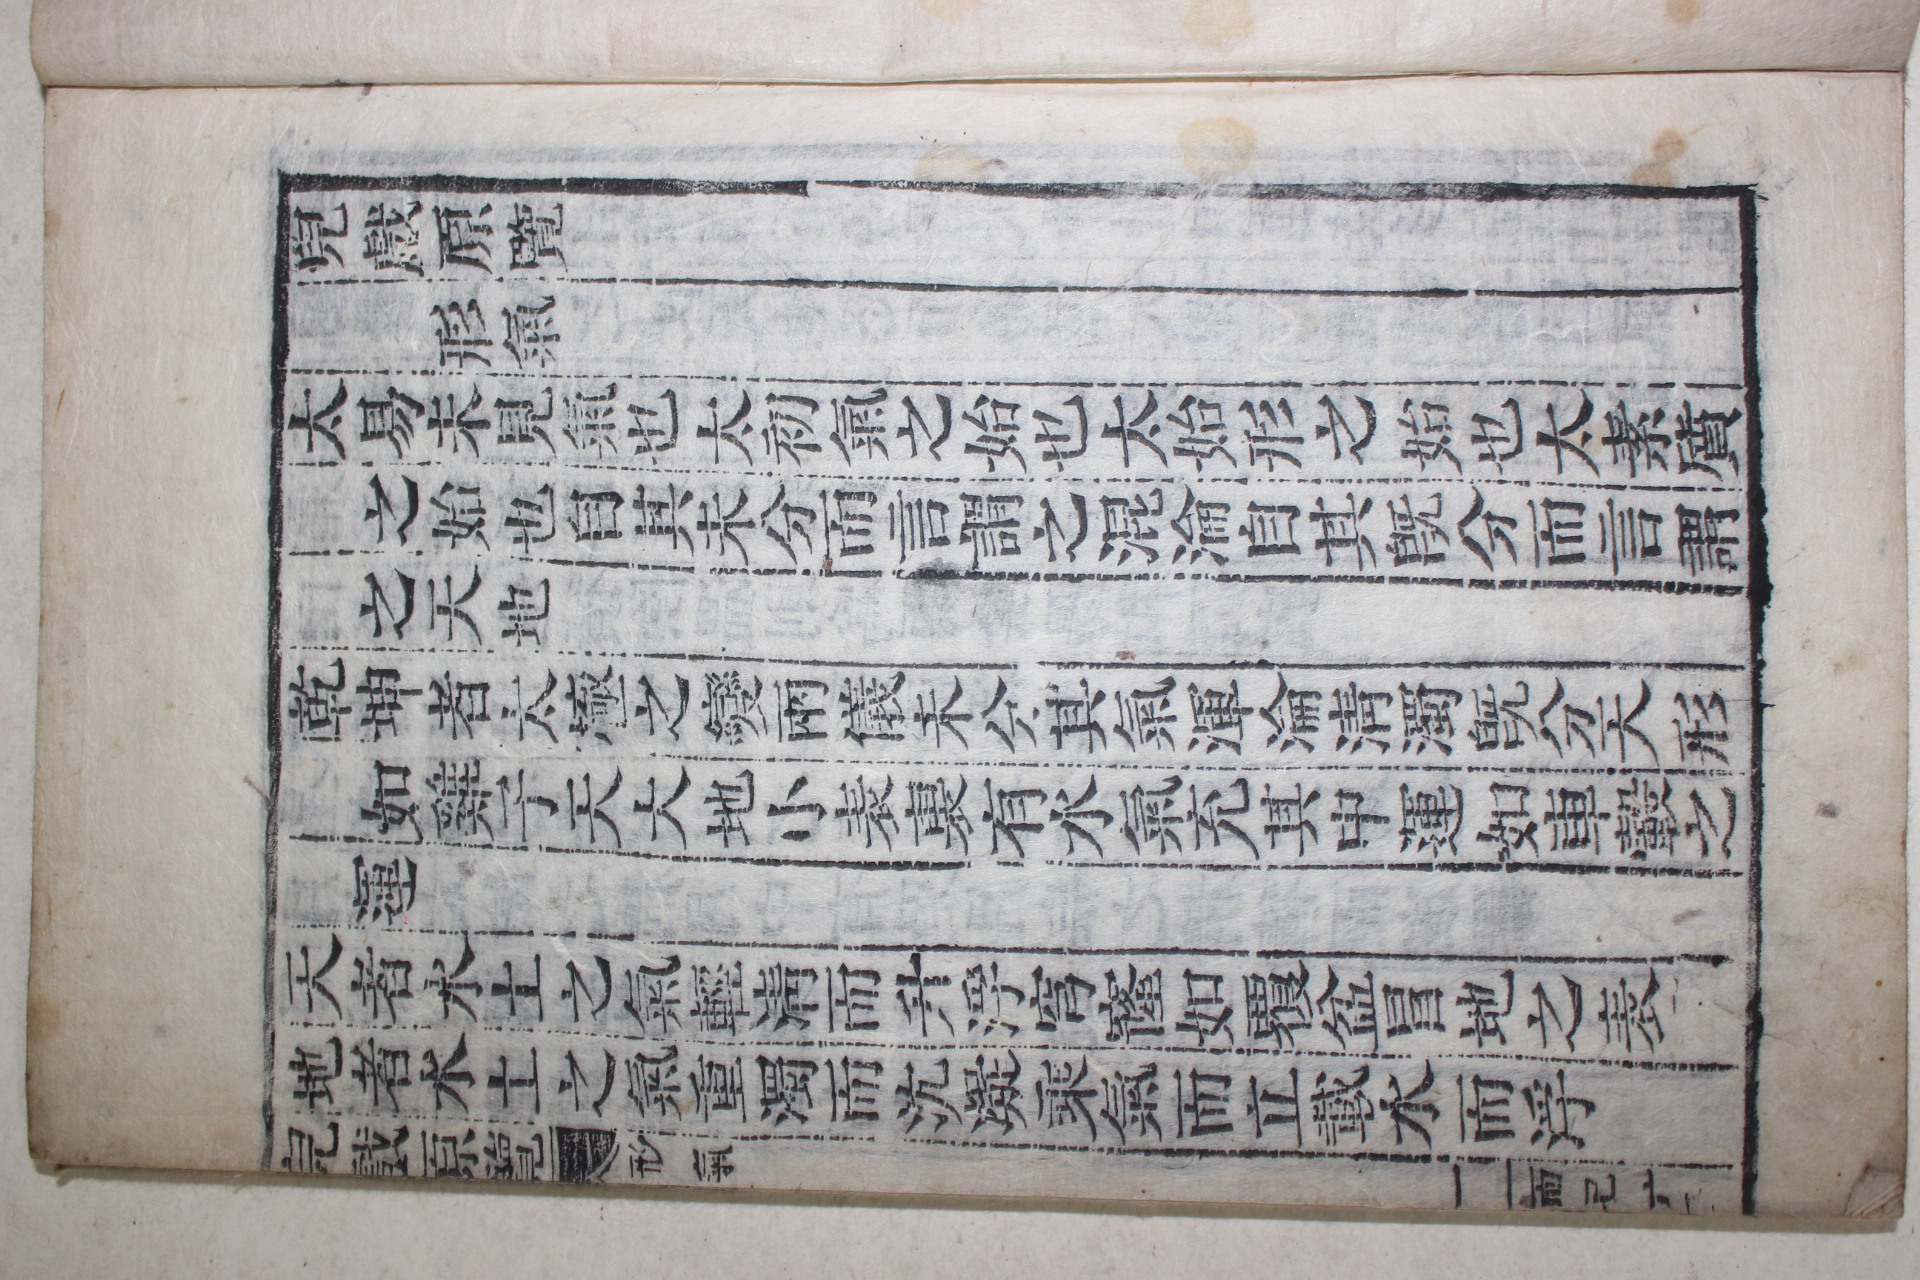 兒戲原覽
形氣
太易未見氣也太初氣之始也太始形之始也太素質
之始也自其未分而言謂之混淪自其旣分而言謂
之天地
乾坤者太極之變兩儀未分其氣渾淪淸濁旣分天形
如雞子天大地小表裏有水氣充其中運如車轂之
運
天者水土之氣輕淸而升浮穹窿如覆盆冒地之表
地者水土之氣重濁而沉凝乘氣而立載水而浮
兒戲原覽 形氣 一